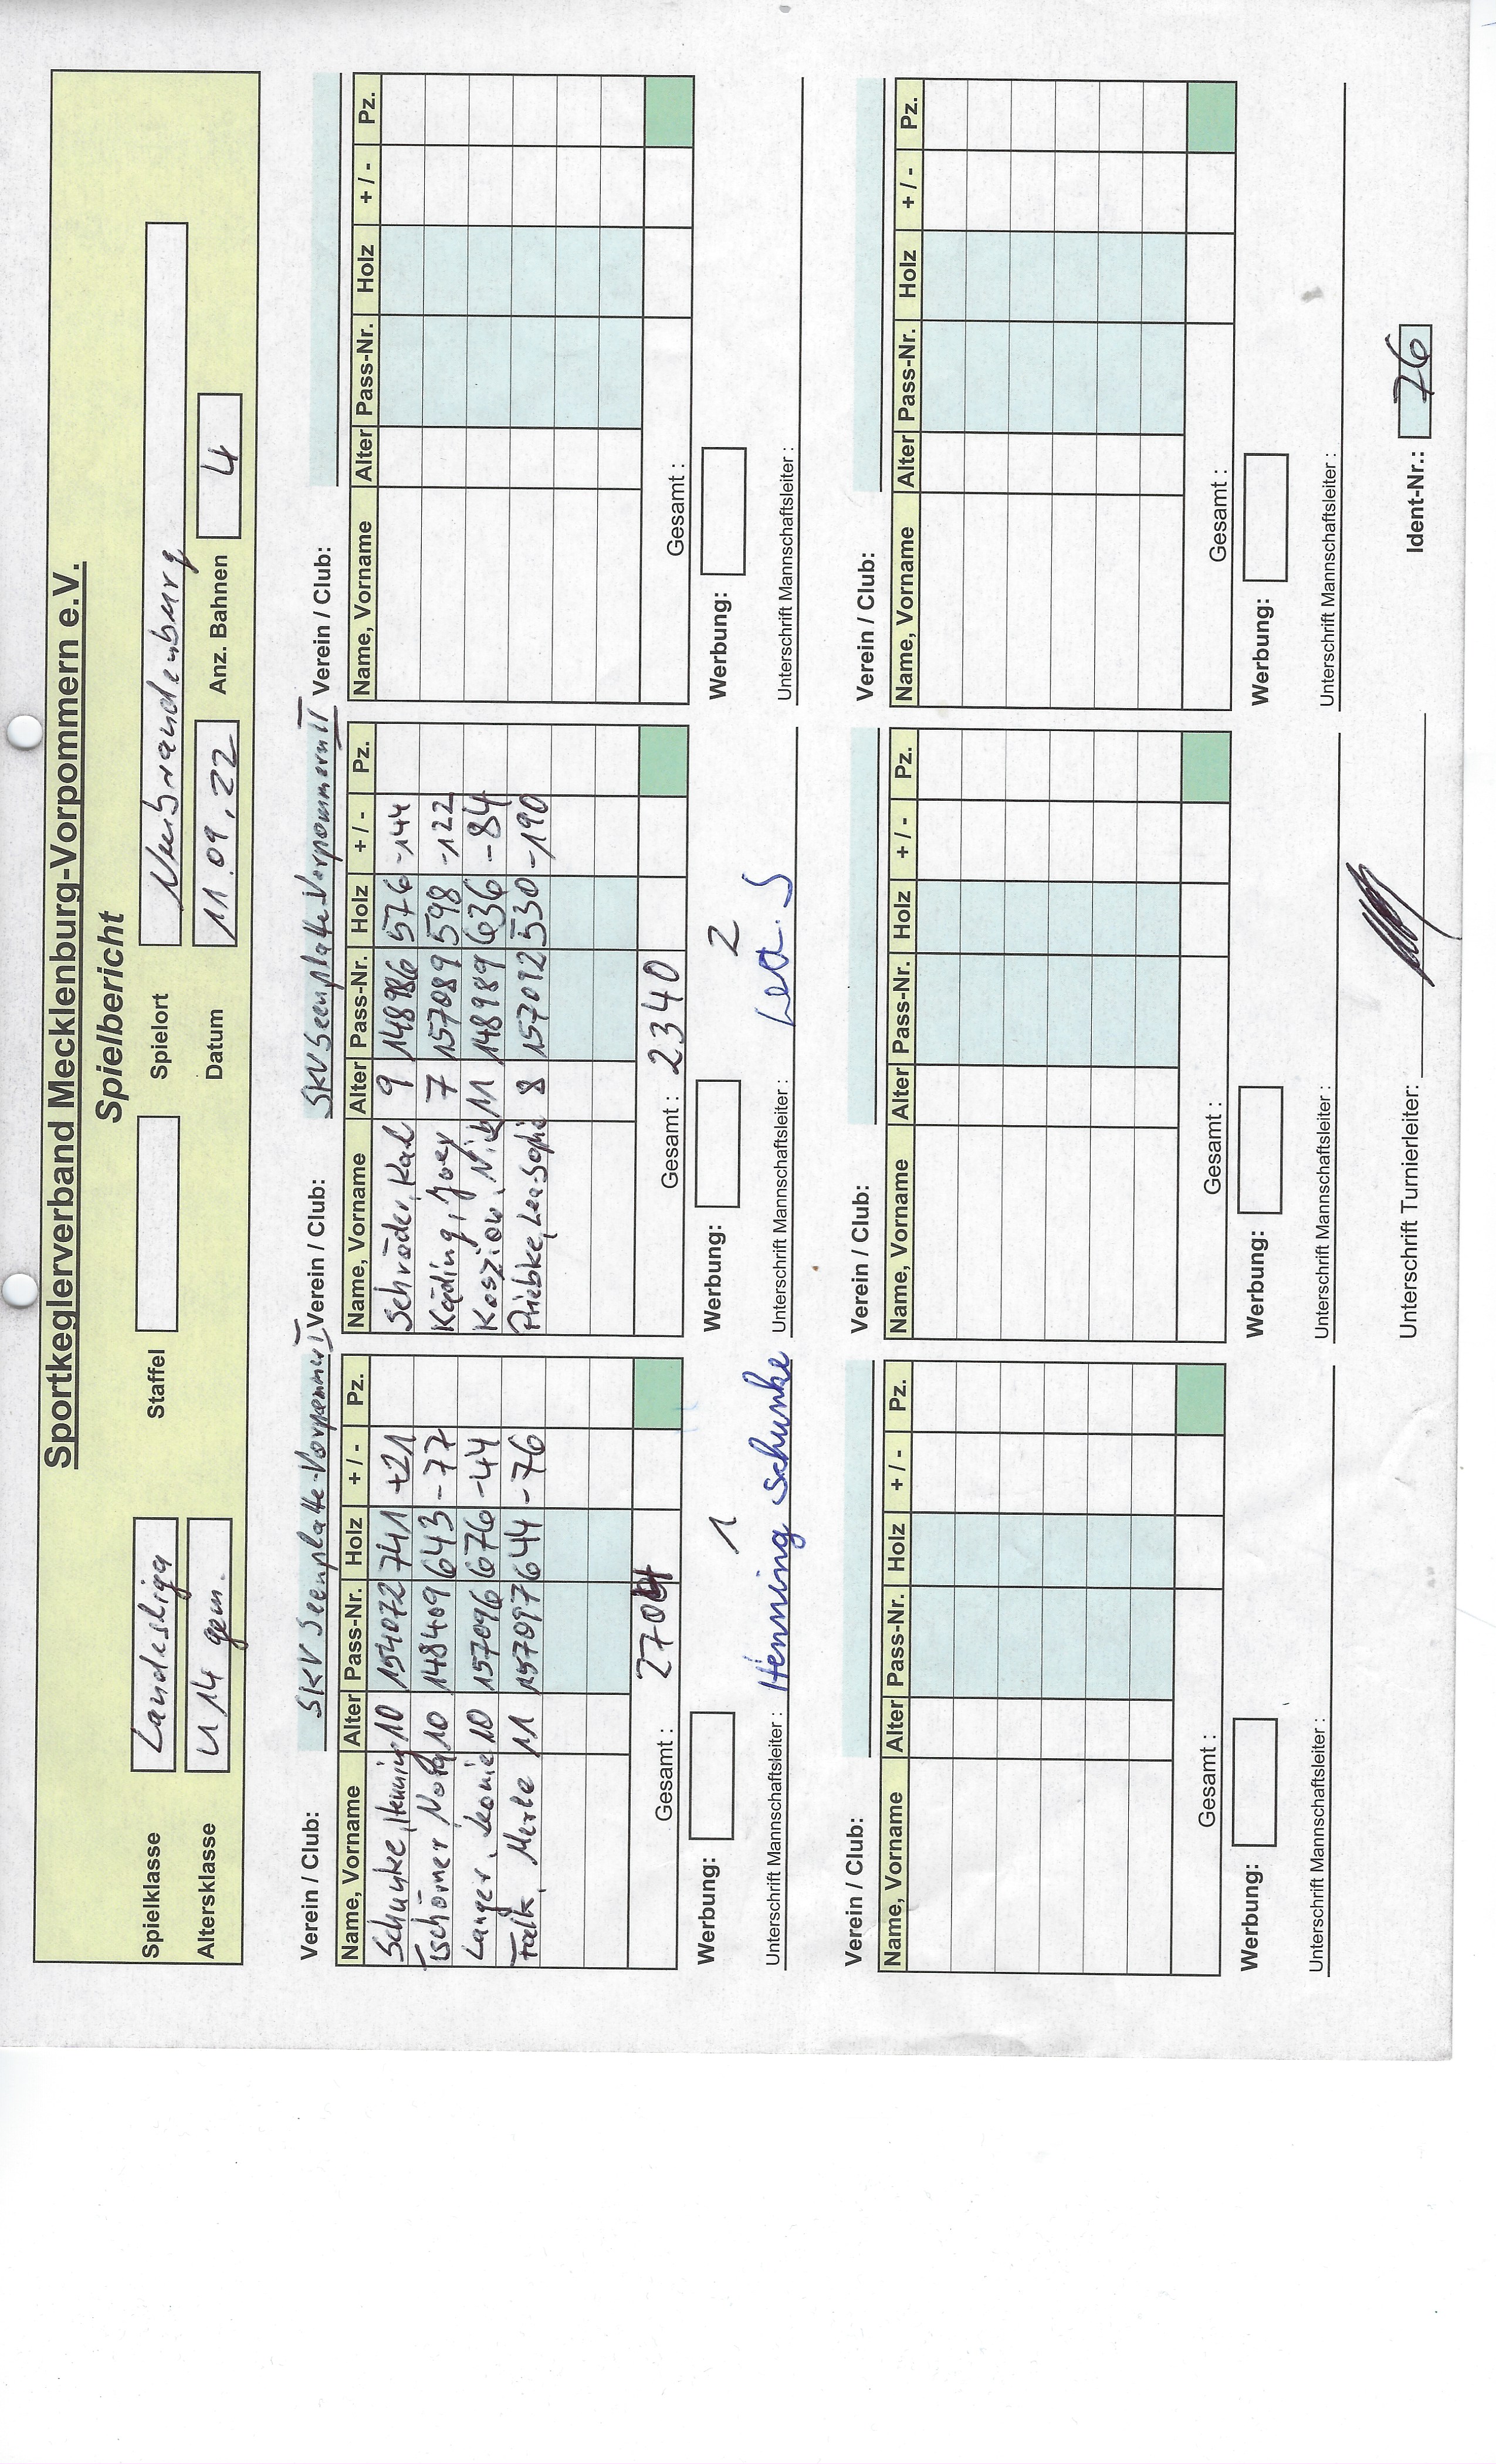 Sportkeglerverband Mecklenburg-Vorpommern e.V.
Spielbericht
Spielklasse Landesliga Staffel Spielort Neubrandenburg
Altersklasse U 14 gem. Datum 11.09.22 Anz. Bahnen 4
Verein / Club: SKV Seenplatte-Vorpommern I
Name, Vorname Alter Pass-Nr. Holz + / - Pz.
Schunke, Henning 10 154072 741 +21
Tschörner Nora 10 148409 643 -77
Langer, Leonie 10 157096 676 -44
Falk, Merle 11 157097 644 -76
Gesamt : 2704
Werbung: 1
Unterschrift Mannschaftsleiter : Henning Schunke
Verein / Club: SKV Seenplatte-Vorpommern II
Name, Vorname Alter Pass-Nr. Holz + / - Pz.
Schröder, Karl 9 148986 576 -144
Käding, Joey 7 157089 598 -122
Kosziow, Nick 11 148989 636 -84
Priebke, Lea-Sophie 8 157092 530 -190
Gesamt : 2340
Werbung: 2
Unterschrift Mannschaftsleiter : Lea. S
Verein / Club:
Name, Vorname Alter Pass-Nr. Holz + / - Pz.
Gesamt :
Werbung:
Unterschrift Mannschaftsleiter :
Verein / Club:
Name, Vorname Alter Pass-Nr. Holz + / - Pz.
Gesamt :
Werbung:
Unterschrift Mannschaftsleiter :
Verein / Club:
Name, Vorname Alter Pass-Nr. Holz + / - Pz.
Gesamt :
Werbung:
Unterschrift Mannschaftsleiter :
Verein / Club:
Name, Vorname Alter Pass-Nr. Holz + / - Pz.
Gesamt :
Werbung:
Unterschrift Mannschaftsleiter :
Unterschrift Turnierleiter:
Ident-Nr.: 76